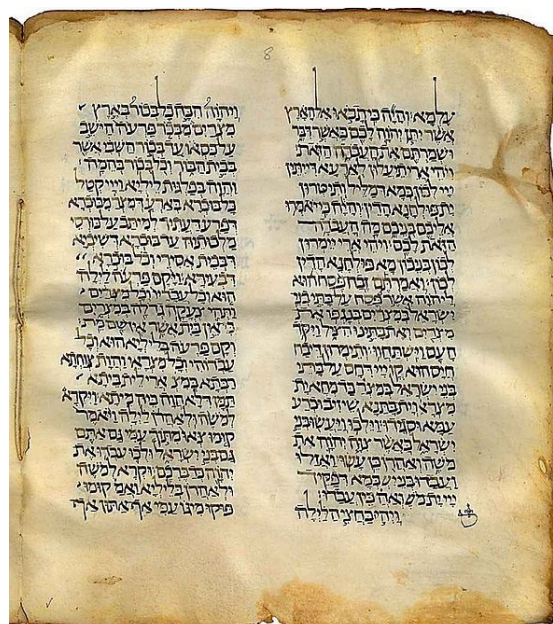 8
עלמא והיה כי תבאו אל הארץ
אשר יתן יהוה לכם כאשר דבר
ושמרתם את העבדה הזאת
ויהי ארי תיעלון לארעא דייתין
ניי לכון כמא דמליל ותיטרון
ית פולחנא הדין והיה כי יאמרו
אליכם בניכם מה העבדה
הזאת לכם ויהי ארי יימרון
לכון בניכון מא פולחנא הדין
לכון ואמרתם זבח פסח הוא
ליהוה אשר פסח על בתי בני
ישראל במצרים בנגפו את
מצרים ואת בתינו הציל ויקד
העם וישתחוו ותימרון דיבח
חייס הוא קדם ניי דחס על בתי
בני ישראל במצר כד מחא ית
מצראי וית בתנא שיזיב וכרע
עמא וסגידו וילכו ויעשו בני
ישראל כאשר צוה יהוה את
משה ואהרן כן עשו ואזלו
ועבדו בני יש כמא דפקיד
ניי ית משה ואהרן כין עבדו
ויהי בחצי הלילה
ויהוה הכה כל בכור בארץ
מצרים מבכר פרעה הישב
על כסאו עד בכור השבי אשר
בבית הבור וכל בכור בהמה
והוה בפלגות ליליא וניי קטל
כל בוכרא בארעא דמצר מבוכרא
דפרעה דעתיד למיתב על כורסי
מלכותיה עד בוכרא דשיביא
דבבית אסירי וכל בוכרא
דבעירא ויקם פרעה לילה
הוא וכל עבדיו וכל מצרים
ותהי צעקה גדלה במצרים
כי אין בית אשר אין שם מת
וקם פרעה בליליא הוא וכל
עבדוהי וכל מצראי והות צוחתא
רבתא במצ ארי לית ביתא
תמן דלא הוה ביה מיתא ויקרא
למשה ולאהרן לילה ויאמר
קומו צאו מתוך עמי גם אתם
גם בני ישראל ולכו עבדו את
יהוה כדברכם וקרא למשה
ולאהרן בליליא ואמ קומו
פוקו מגו עמי אף אתון אף